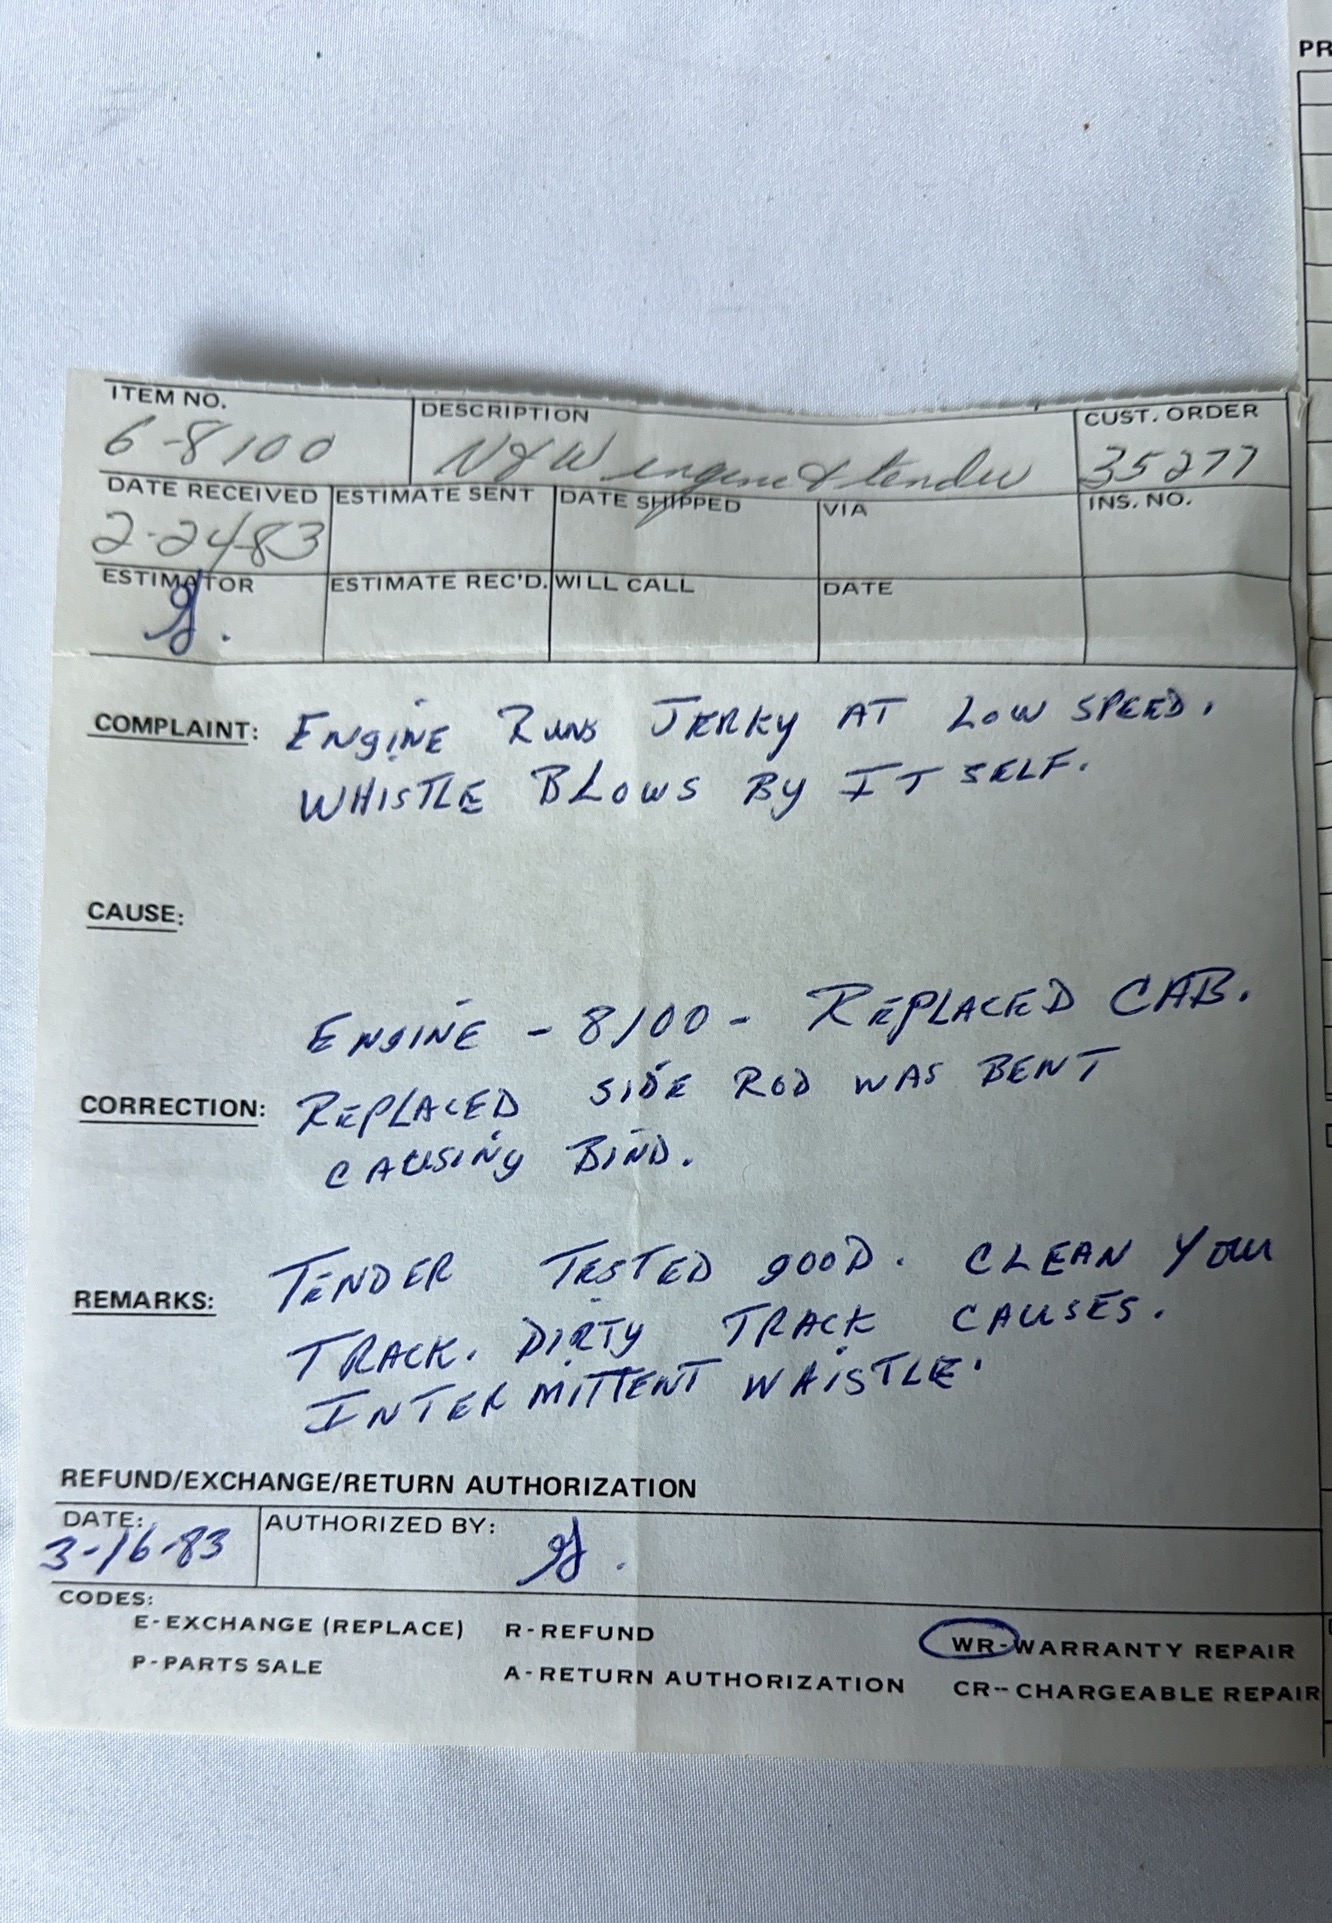 PR
ITEM NO. DESCRIPTION CUST. ORDER
6-8100 N&W engine & tender 35277
DATE RECEIVED ESTIMATE SENT DATE SHIPPED VIA INS. NO.
2-24-83
ESTIMATOR ESTIMATE REC'D. WILL CALL DATE
COMPLAINT: ENGINE RUNS JERKY AT LOW SPEED.
WHISTLE BLOWS BY ITSELF.
CAUSE:
ENGINE - 8100 - REPLACED CAB.
CORRECTION: REPLACED SIDE ROD WAS BENT
CAUSING BIND.
REMARKS: TENDER TESTED GOOD. CLEAN YOUR
TRACK. DIRTY TRACK CAUSES.
INTERMITTENT WAISTLE.
REFUND/EXCHANGE/RETURN AUTHORIZATION
DATE: AUTHORIZED BY:
3-16-83
CODES:
E-EXCHANGE (REPLACE) R-REFUND WR-WARRANTY REPAIR
P-PARTS SALE A-RETURN AUTHORIZATION CR--CHARGEABLE REPAIR